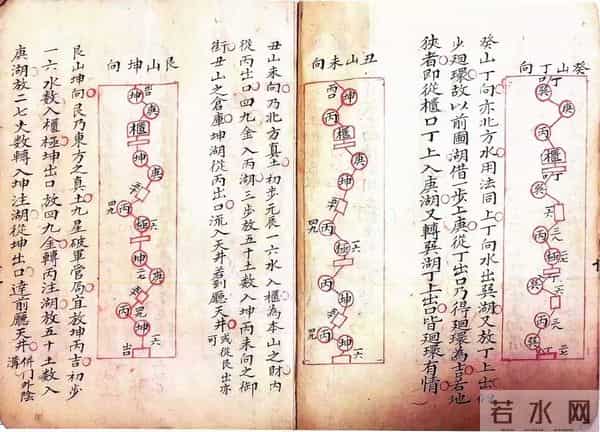 癸山丁向
丁口
庚
丙
櫃
丁
丙
極
丙
庚
癸山丁向亦北方水用法同上丁向水出巽湖又放丁上出似
少廻環故以前圖湖借一步上庚從丁出口乃得廻環為吉若地
狹者即從櫃口丁上入庚湖又轉巽湖丁上出口皆廻環有情
丑山未向
丙口
坤
丙
櫃
坤
庚
四九
丙
極
一六
丙
坤
四九
丙
坤
一六
丑山未向乃北方真土初步元辰一六水入櫃為本山之財內
從丙出口四九金入丙湖三步放五十土數入坤丙未向之御
街丑山之倉庫坤湖從丙出口流入天井若到廳天井或從艮出亦可
艮山坤向
吉
坤
庚
櫃
坤
庚
四九
丙
極
一六
坤
庚
丙
坤
一六
吉
艮山坤向艮乃東方之真土九星破軍管局宜放坤丙吉初步
一六水數入櫃極坤出口放四九金轉丙注湖放五十土數入
庚湖放二七火數轉入坤注湖從坤出口達前廳天井併門外陰溝
若水网